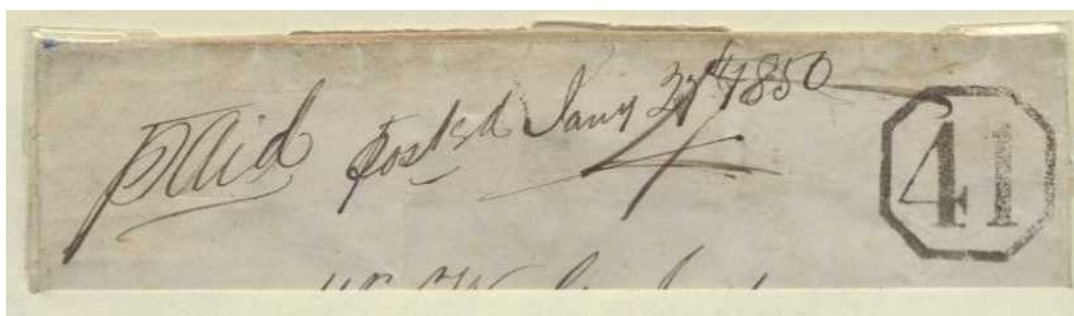 Paid Posted Jany 27th 1850
4 41